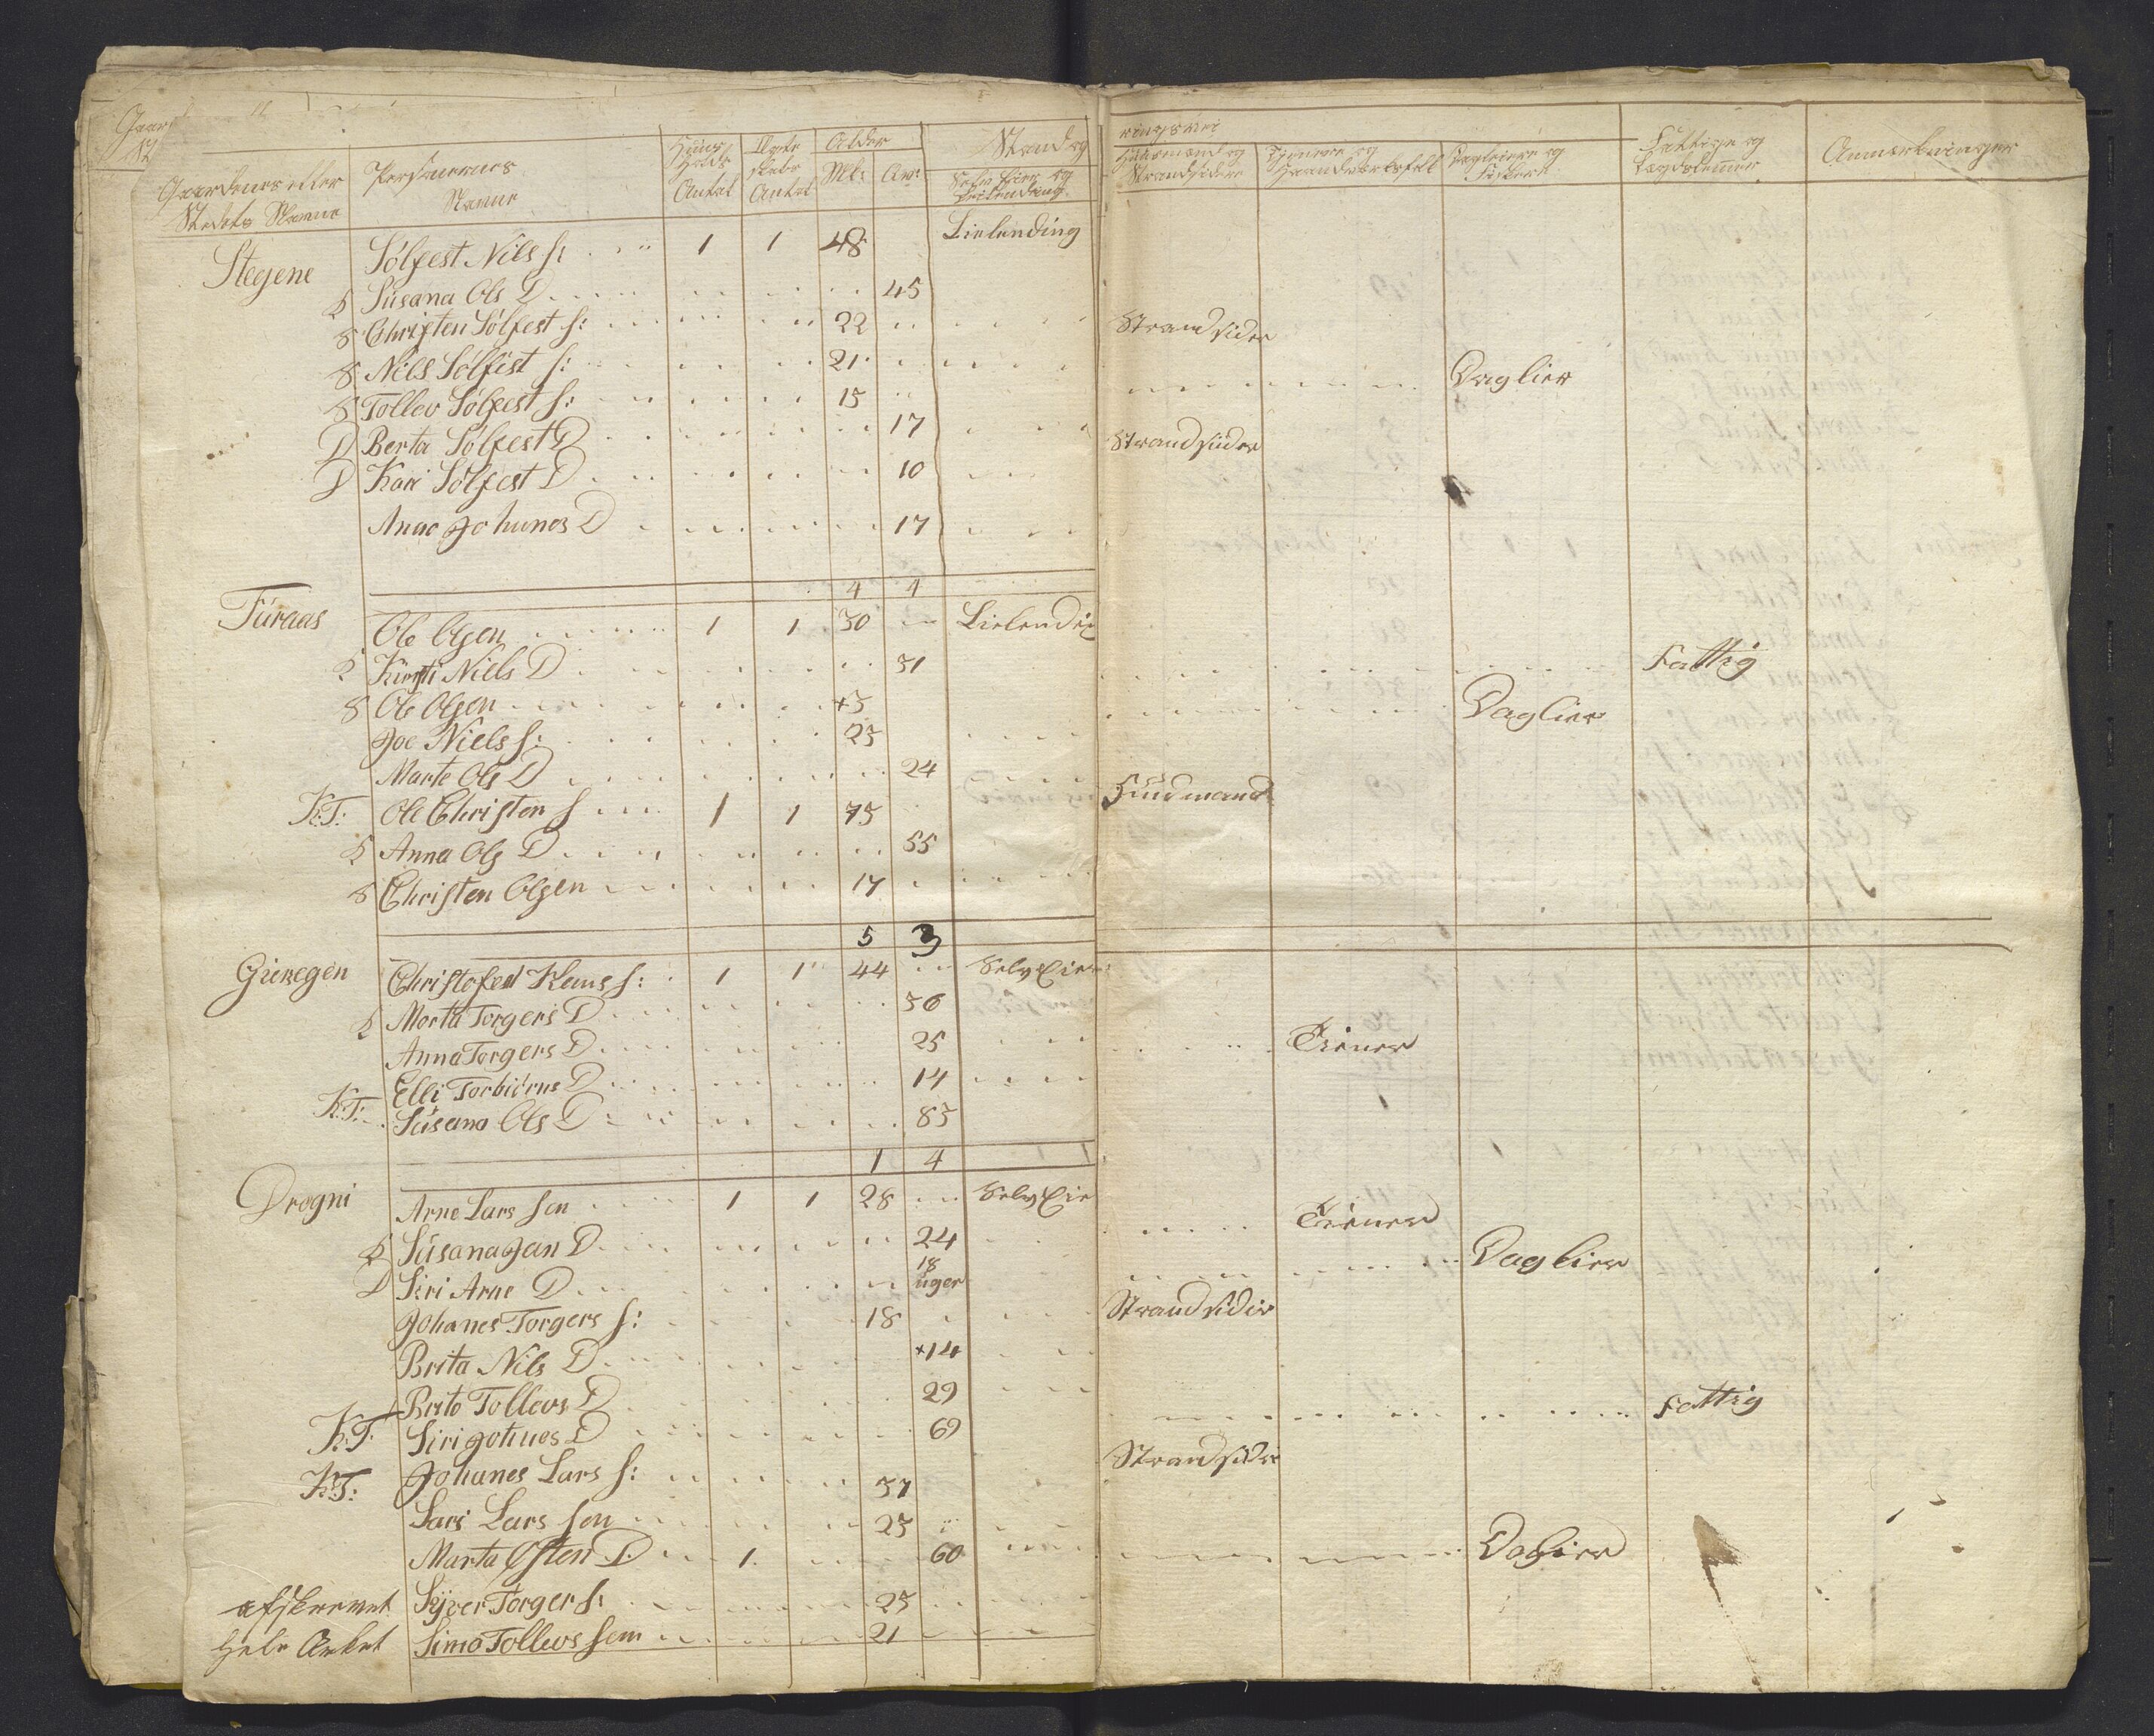 Gaardenes eller Stædets Navne
Personernes Navne
Huus Holds Antal
Ægte skabs Antal
Alder
Mk: Qv:
Stand og
Selv Eier og Leilending
ringsvei
Huusmænd og Strandsidere
Tjenere og Haandværksfolk
Dagleiere og Fiskere
Fattige og Lægdslemmer
Anmærkninger
Stegene Sølfest Nils S: 1 1 48 Lielending
K Susana Ols D 45
S Christen Sølfest S: 22 Strandsider
S Nils Sølfist S: 21 Daglier
S Tollev Sølfest S: 15
D Berta Sølfest D 17 Strandsider
D Kari Sølfest D 10
Anne Johunes D 17
4 4
Turaas Ole Olsen 1 1 50 Lielendig
K Kirsti Niels D 51 Fattig
S Ole Olsen +5 Daglier
Joe Niels S: 25
Marte Ols D 24
K:T: Ole Christen S 1 1 75 Husmand
K Anna Ols D 55
S Christen Olsen 17
5 3
Gieregen Christofed Klaus S: 1 1 44 Selv Eier
K Morta Torgers D 56
Anna Torgers D 25 Tiener
Elli Torbiörns D 14
K:T: Susana Ols D 85
1 4
Drogni Arne Lars Son 1 1 28 Selv Eie
K Susana Jan D 24 Tiener
D Siri Arne D 18 uger Daglier
Johanes Torgers S: 18 Strandsider
Brita Nils D +14
Brite Tollevs D 29
K:T: Siri Johnes D 69 Fattig
K:T: Johanes Lars S: 37 Strandsider
Lars Lars Son 25
Marta Østen D 1 60 Daglier
Syver Torger S: 25
afskrevet
Simo Tollevs Son 21
Hele Arket